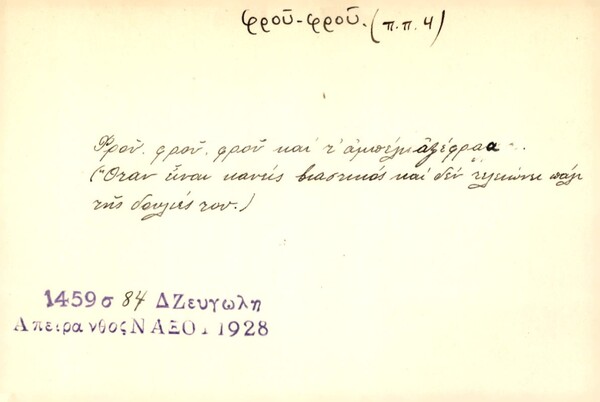 φρού-φρού. (π.π.4)
Φρού. φρού. φρού και τ' αμπέλι αξέφραα..
(Όταν είναι κανείς βιαστικός και δεν τελειώνει πάλι
τής δουλιές του.)
1459 σ 84 ΔΖευγωλη
Απειρανθος ΝΑΞΟΥ 1928